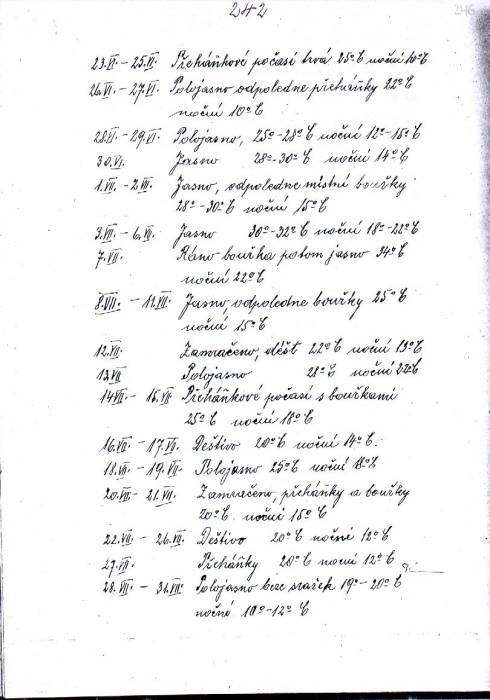 242
246
23.VI. - 25.VI. Přeháňkové počasí trvá 25°C noční 10°C
26.VI. - 27.VI. Polojasno odpoledne přeháňky 22°C
noční 10°C
28.VI. - 29.VI. Polojasno, 25°-28°C noční 12°-15°C
30.VI. Jasno 28°-30°C noční 14°C
1.VII. - 2.VII. Jasno, odpoledne místní bouřky
28°-30°C noční 15°C
3.VII. - 6.VII. Jasno 30°-32°C noční 18°-22°C
7.VII. Ráno bouřka potom jasno 34°C
noční 22°C
8.VII. - 11.VII. Jasno, odpoledne bouřky 25°C
noční 15°C
12.VII. Zamračeno, déšť 22°C noční 13°C
13.VII Polojasno 28°C noční 22°C
14.VII. - 15.VII. Přeháňkové počasí s bouřkami
25°C noční 18°C
16.VII. - 17.VII. Deštivo 20°C noční 14°C.
18.VII. - 19.VII. Polojasno 25°C noční 18°C
20.VII - 21.VII. Zamračeno, přeháňky a bouřky
20°C. noční 15°C
22.VII - 26.VII. Deštivo 20°C noční 12°C
27.VII. Přeháňky 20°C noční 12°C
28.VII. - 31.VII. Polojasno beze srážek 19°-20°C
noční 10°-12°C